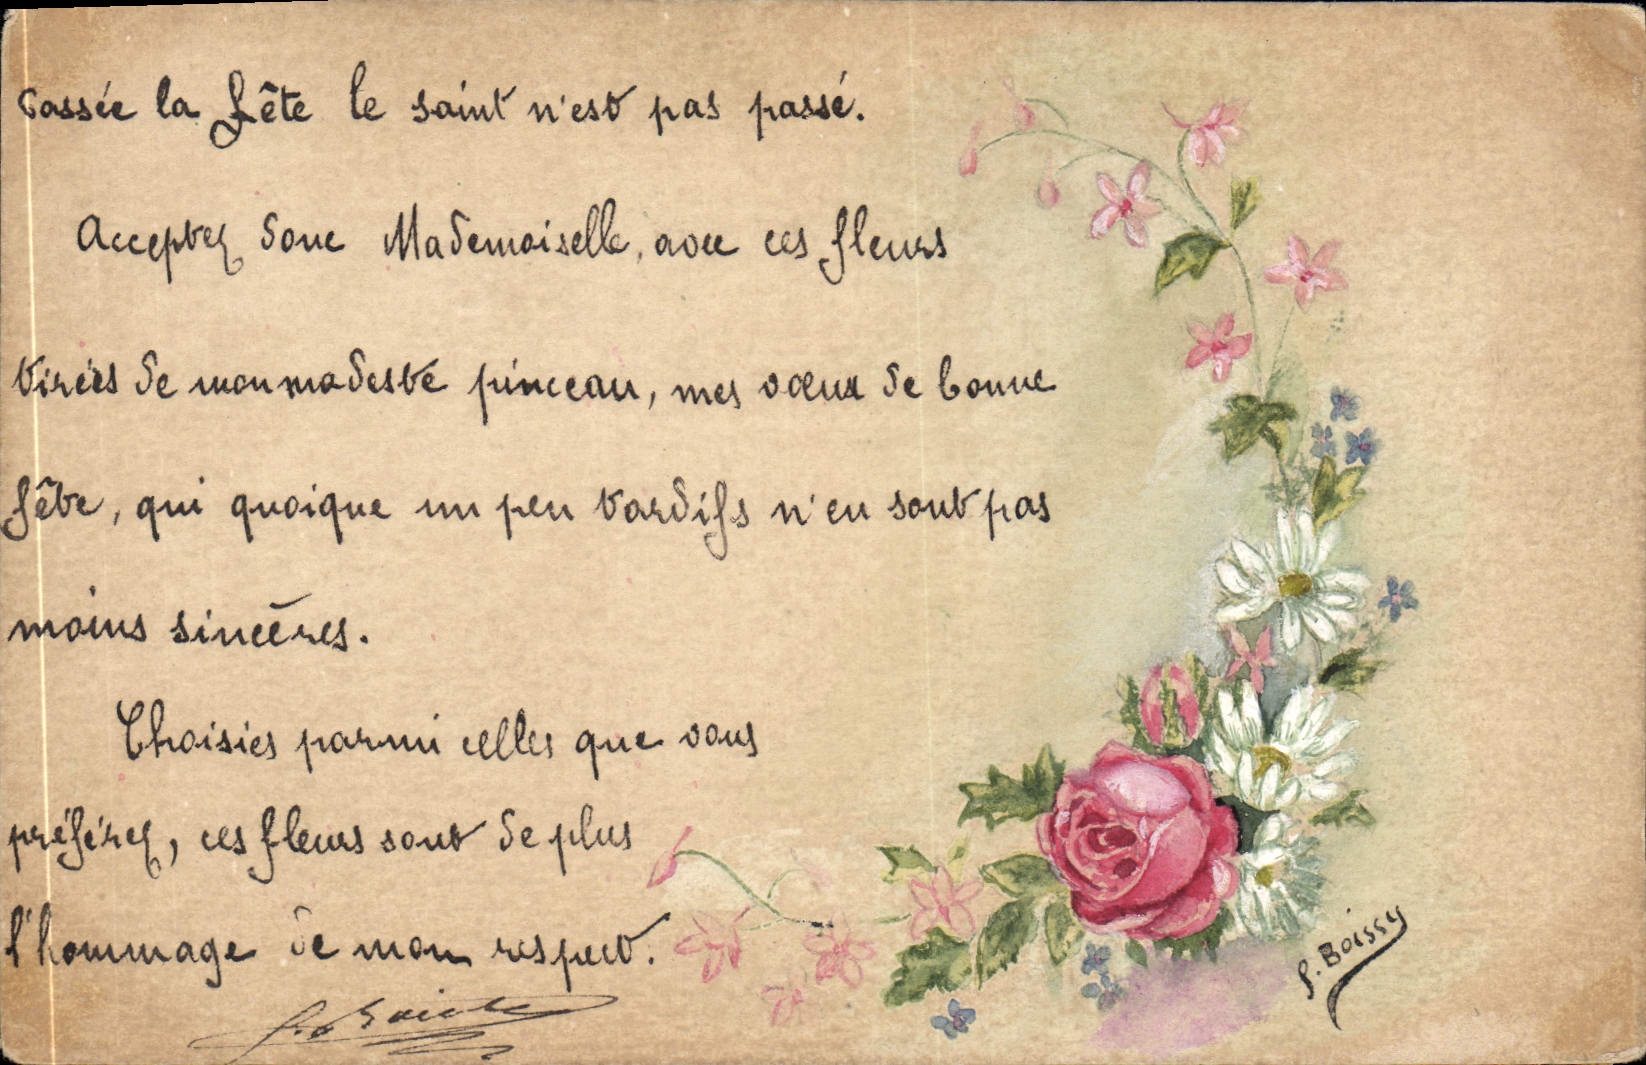 Passée la fête le saint n'est pas passé.
Acceptez donc Mademoiselle, avec ces fleurs
tirées de mon modeste pinceau, mes vœux de bonne
fête, qui quoique un peu tardifs n'en sont pas
moins sincères.
Choisies parmi celles que vous
préférez, ces fleurs sont de plus
l'hommage de mon respect.
P. Boissy